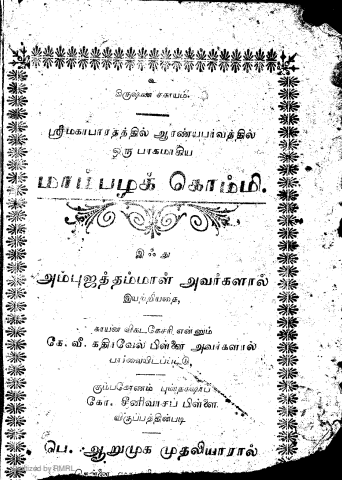 உ
கிருஷ்ண சகாயம்.
ஸ்ரீமகாபாரதத்தில் ஆரண்யபர்வத்தில்
ஒரு பாகமாகிய
மாப்பழக் கொம்மி.
இஃது
அம்புஜத்தம்மாள் அவர்களால்
இயற்றியதை,
காயன விகடகேசரி என்னும்
கே. வீ. கதிர்வேல் பிள்ளை அவர்களால்
பார்வையிடப்பட்டு,
கும்பகோணம்
கோ. சீனிவாசப் பிள்ளை
விருப்பத்தின்படி
பெ. ஆறுமுக முதலியாரால்
Digitized by RMRL